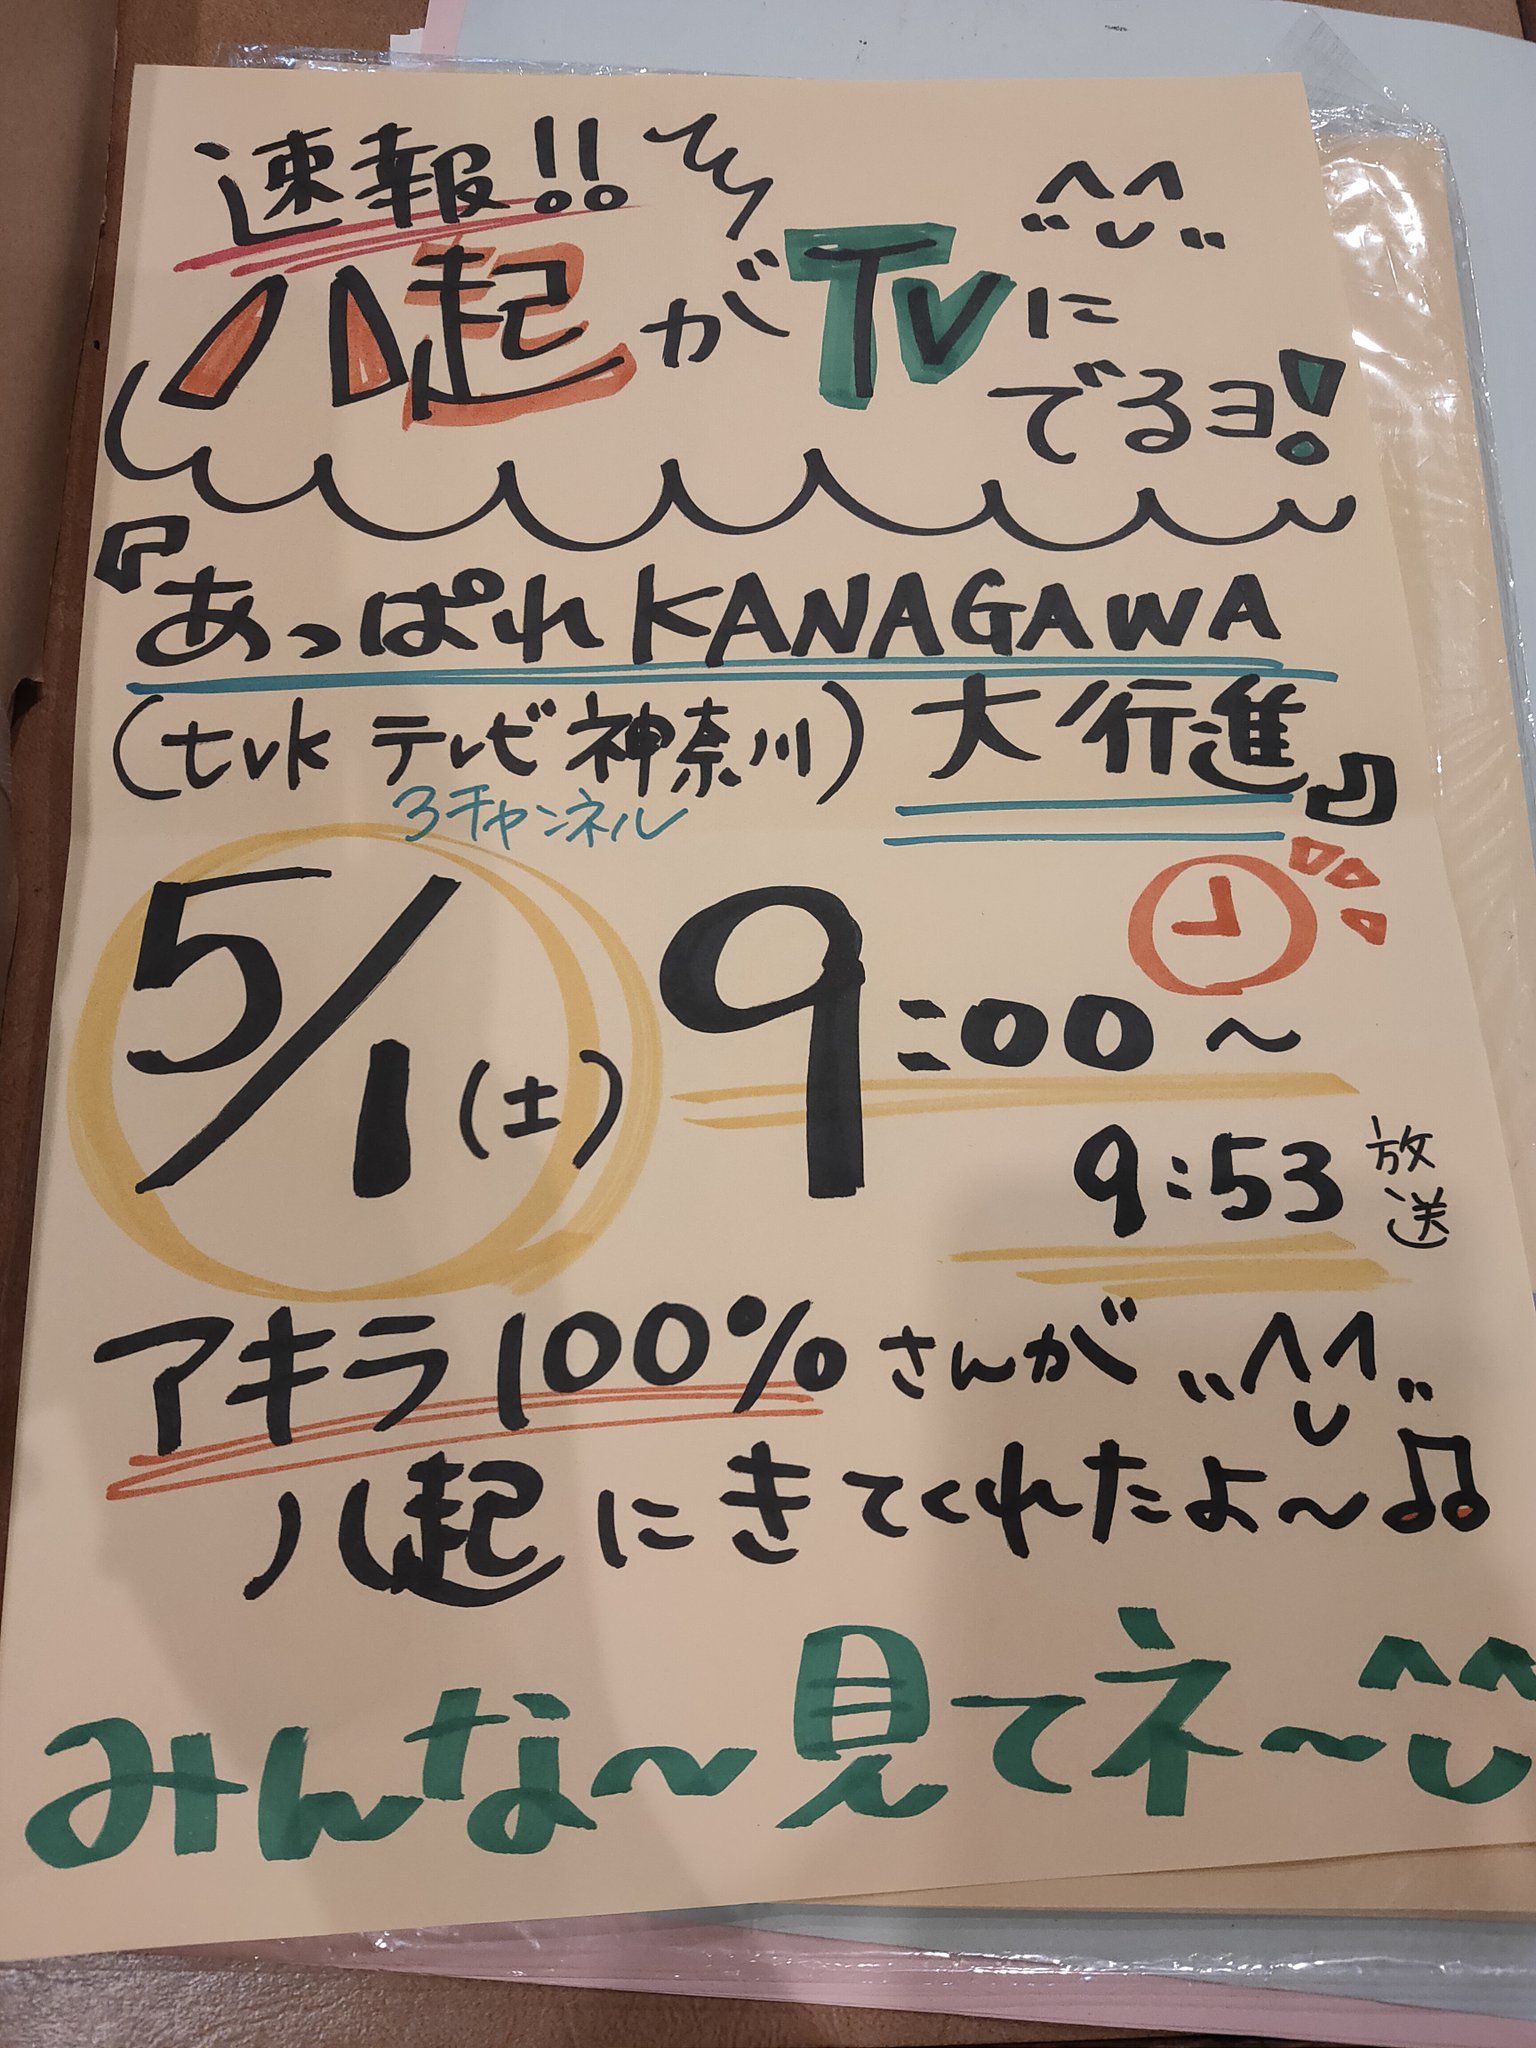 速報!!
八起がTVに
でるヨ!
『あっぱれKANAGAWA
大行進』
(tvk テレビ神奈川)
3チャンネル
5/1(土) 9:00〜
9:53 放送
アキラ100%さんが
八起にきてくれたよ〜♫
みんな〜見てネ〜